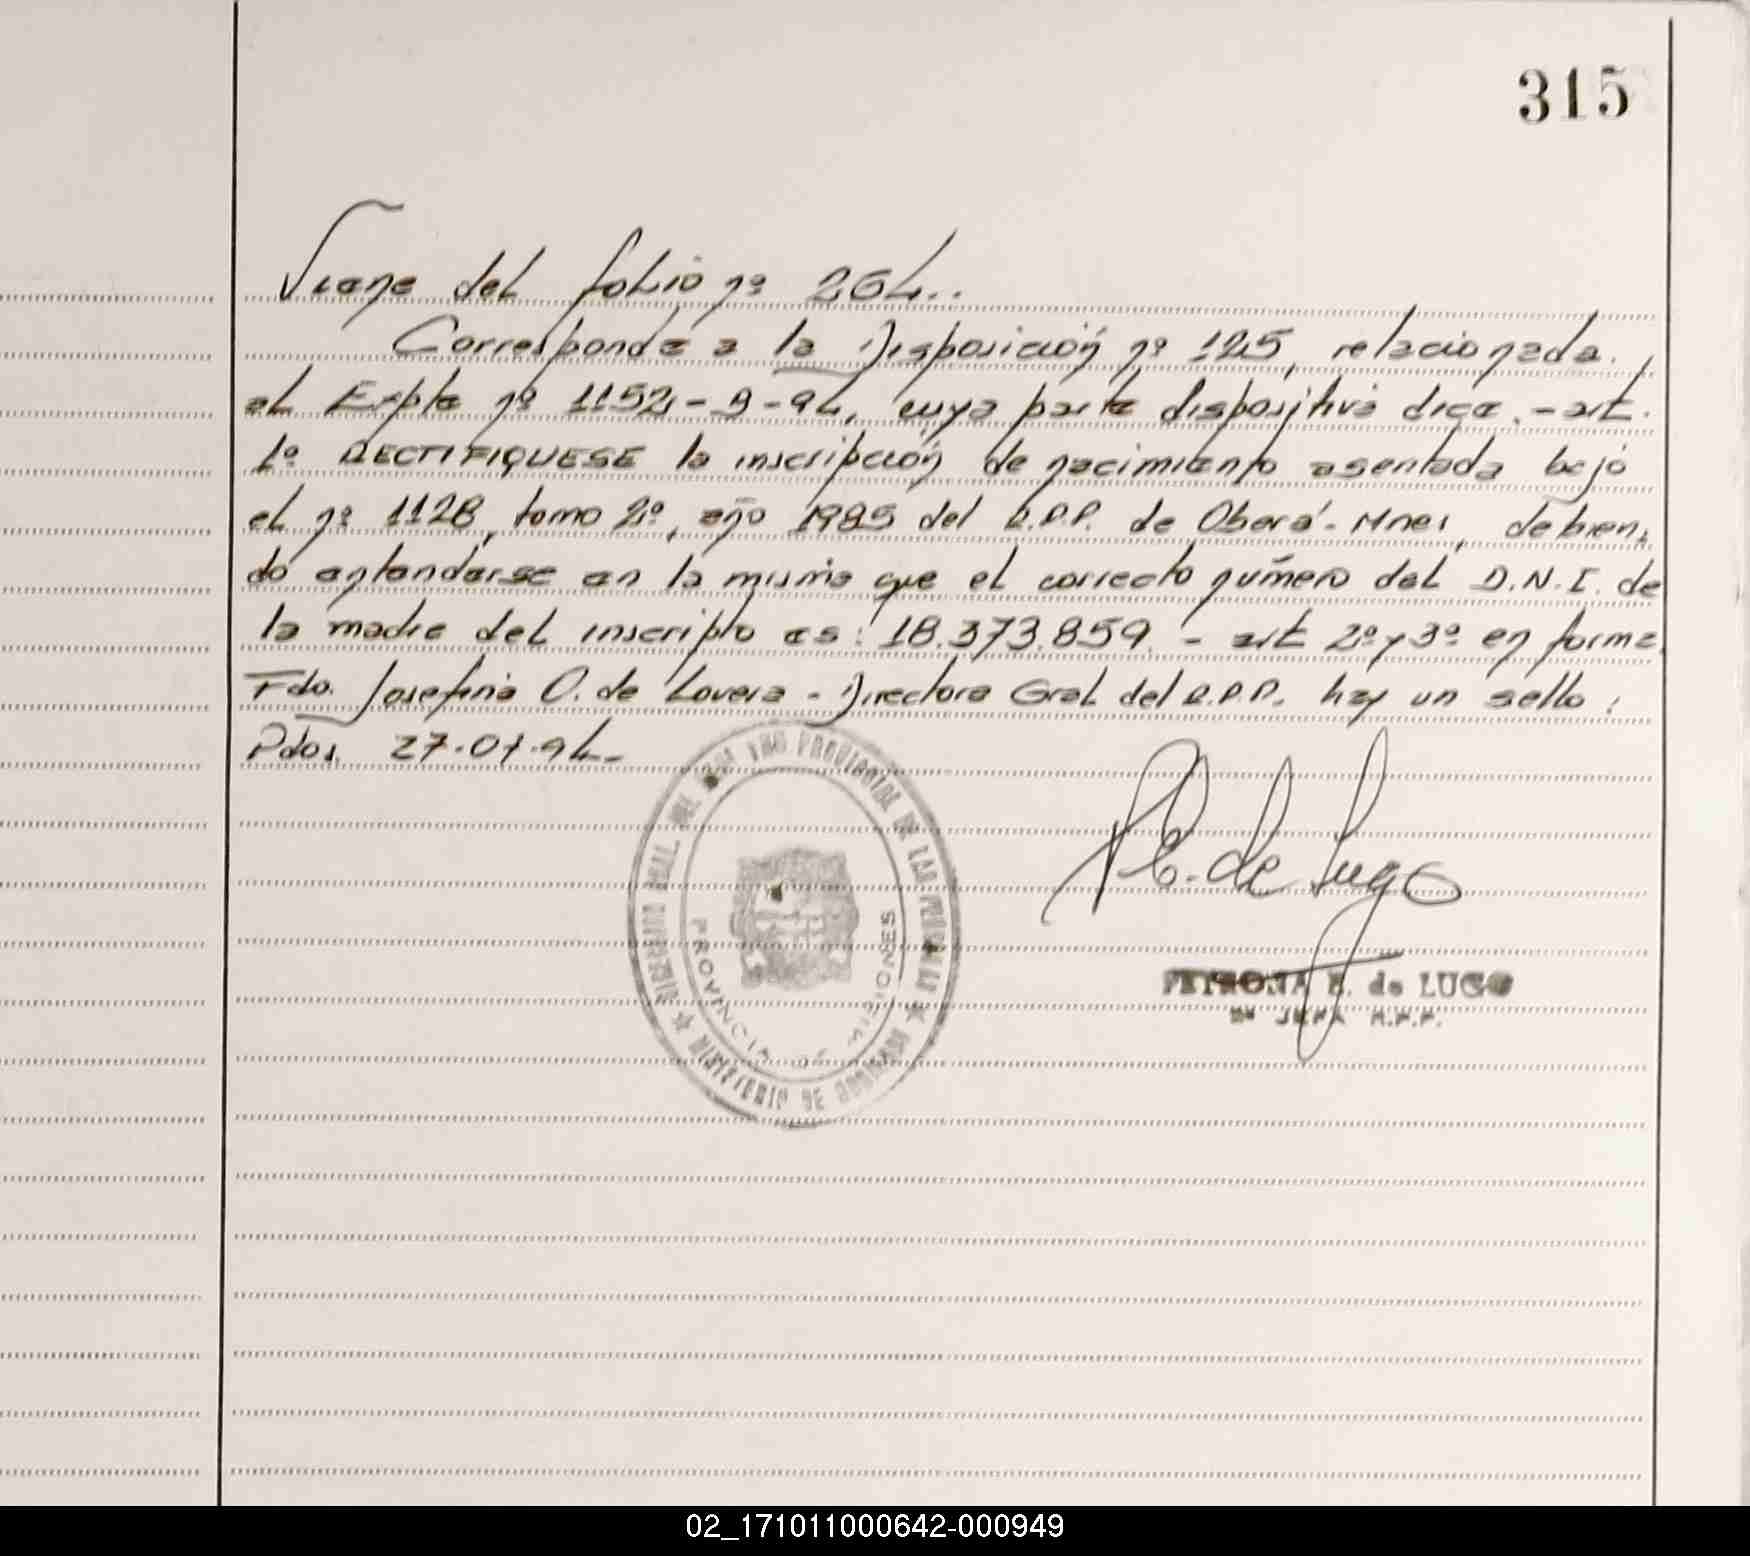 315
Viene del folio nº 264..
Corresponde a la Disposición nº 125, relacionada
al Expte nº 1152-9-94, cuya parte dispositiva dice.- art.
1º RECTIFIQUESE la inscripción de nacimiento asentada bajo
el nº 1128, tomo 2º, año 1985 del R.P.P. de Oberá-Mnes, debien,
do entenderse en la misma que el correcto número del D.N.I. de
la madre del inscripto es: 18.373.859.- art 2º y 3º en forma.
Fdo. Josefina O. de Lovera - Directora Gral del R.P.P. hay un sello:
Pdas, 27-01-94-
P. E. de Lugo
PETRONA E. de LUGO
JEFA R.P.P.
PROVINCIAL DE LAS PERSONAS
MINISTERIO DE GOBIERNO
PROVINCIA DE MISIONES
02_171011000642-000949